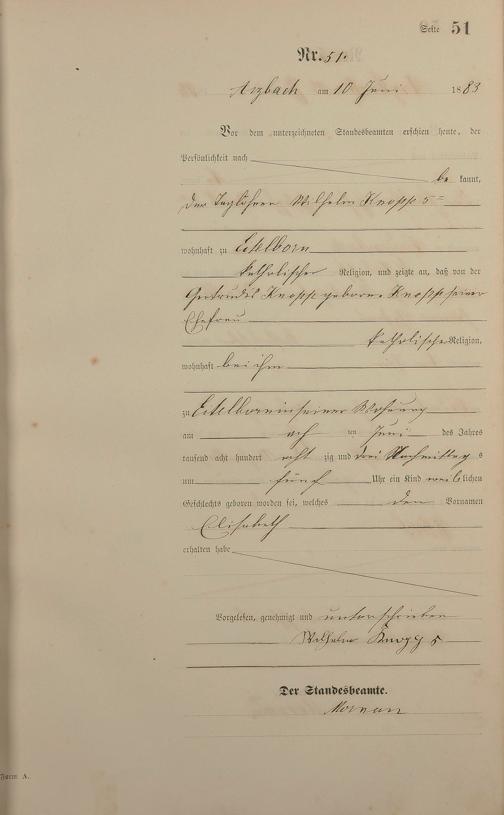 Seite 51
Nr. 51.
Arzbach am 10 Juni 1883
Vor dem unterzeichneten Standesbeamten erschien heute, der
Persönlichkeit nach
be kannt,
der Taglöhner Wilhelm Knopp 5
wohnhaft zu Eitelborn
katholischer Religion, und zeigte an, daß von der
Gertrudis Knopp geborne Knopp seiner
Ehefrau
katholische Religion,
wohnhaft bei ihm
zu Eitelborn in seiner Wohnung
am ten Juni des Jahres
tausend acht hundert acht zig und drei Nachmittags
um fünf Uhr ein Kind weiblichen
Geschlechts geboren worden sei, welches den Vornamen
Elisabeth
erhalten habe
Vorgelesen, genehmigt und unterschrieben
Wilhelm Knopp 5
Der Standesbeamte.
Form A.